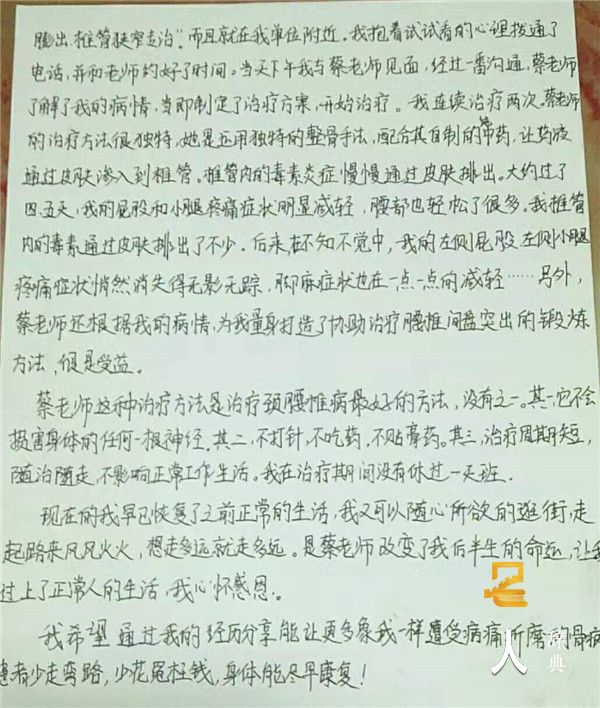 膨出、椎管狭窄走治”。而且就在我单位附近。我抱着试试看的心理拨通了
电话,并和老师约好了时间。当天下午我与蔡老师见面,经过一番沟通,蔡老师
了解了我的病情,当即制定了治疗方案,开始治疗。我连续治疗两次。蔡老师
的治疗方法很独特,她是运用独特的整骨手法,配合其自制的中药,让药液
通过皮肤渗入到椎管。椎管内的毒素炎症慢慢通过皮肤排出。大约过了
四、五天,我的屁股和小腿疼痛症状明显减轻,腰部也轻松了很多。我椎管
内的毒素通过皮肤排出了不少。后来,在不知不觉中,我的左侧屁股、左侧小腿
疼痛症状悄然消失得无影无踪,脚麻症状也在一点一点的减轻……另外,
蔡老师还根据我的病情,为我量身打造了协助治疗腰椎间盘突出的锻炼
方法,很是受益。
蔡老师这种治疗方法是治疗颈腰椎病最好的方法,没有之一。其一,它不会
损害身体的任何一根神经。其二,不打针,不吃药,不贴膏药。其三,治疗周期短,
随治随走,不影响正常工作生活。我在治疗期间没有休过一天班。
现在的我早已恢复了之前正常的生活,我又可以随心所欲的逛街,走
起路来风风火火,想走多远就走多远。是蔡老师改变了我后半生的命运,让我
过上了正常人的生活,我心怀感恩。
我希望通过我的经历分享能让更多象我一样遭受病痛折磨的骨病
患者少走弯路,少花冤枉钱,身体能尽早康复!
人
辞典